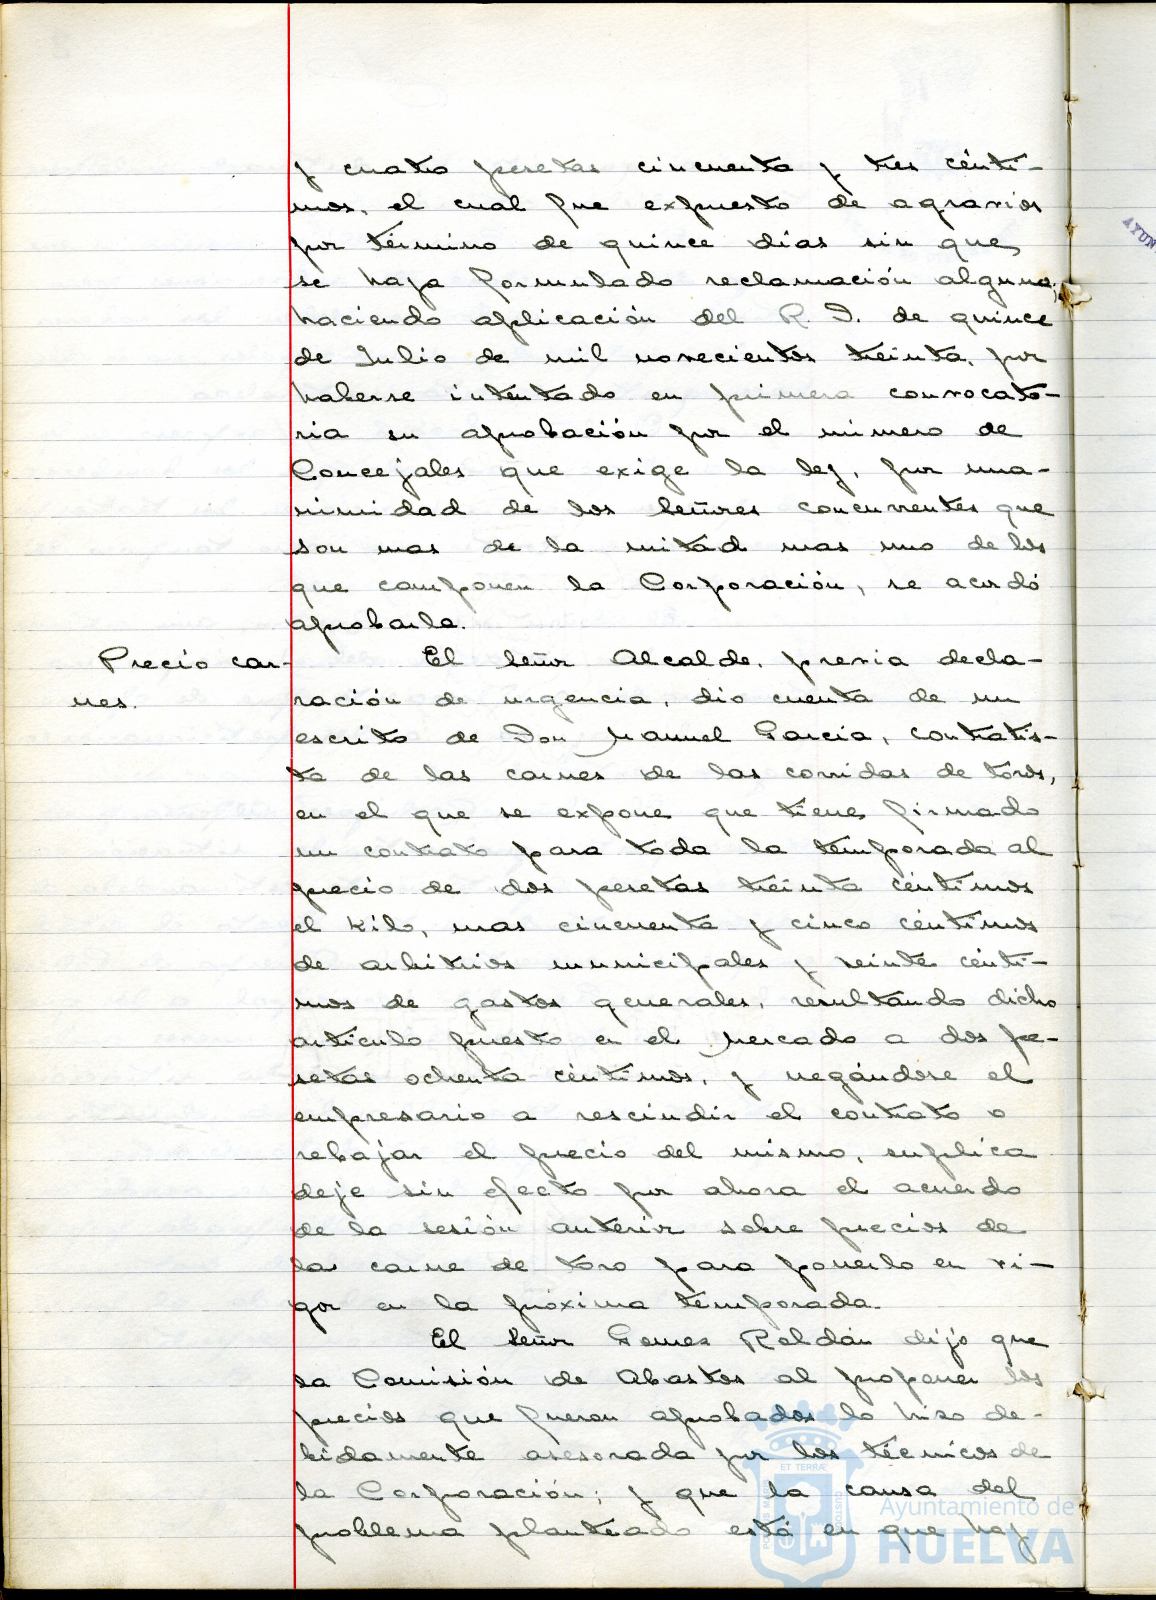 y cuatro pesetas cincuenta y tres cénti-
mos, el cual fue expuesto de agravios
por término de quince dias sin que
se haya formulado reclamación alguna;
haciendo aplicación del R. D. de quince
de Julio de mil novecientos treinta, por
haberse intentado en primera convocato-
ria su aprobación por el número de
Concejales que exige la ley, por una-
nimidad de los señores concurrentes que
son mas de la mitad mas uno de los
que componen la Corporación, se acordó
aprobarla.
Precio car-
nes.
El Señor Alcalde, previa decla-
ración de urgencia, dio cuenta de un
escrito de Don Manuel Garcia, contratis-
ta de las carnes de las corridas de toros,
en el que se expone que tiene firmado
un contrato para toda la temporada al
precio de dos pesetas treinta céntimos
el kilo, mas cincuenta y cinco céntimos
de arbitrios municipales y veinte cénti-
mos de gastos generales, resultando dicho
artículo puesto en el Mercado a dos pe-
setas ochenta céntimos, y negándose el
empresario a rescindir el contrato o
rebajar el precio del mismo, suplica
deje sin efecto por ahora el acuerdo
de la sesión anterior sobre precios de
las carne de toro para ponerlo en vi-
gor en la próxima temporada.
El Señor Gemes Roldán dijo que
la Comisión de Abastos al proponer los
precios que fueron aprobados lo hizo de-
bidamente asesorada por los técnicos de
la Corporación; y que la causa del
problema planteado está en que hay
ET TERRÆ
Ayuntamiento de
HUELVA